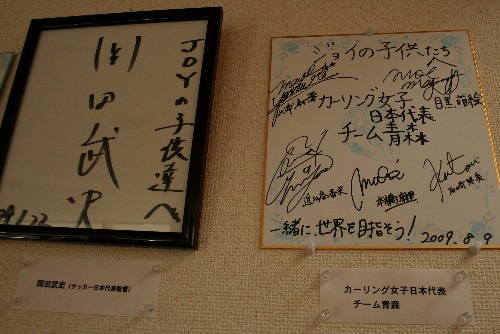 JOYの子供達へ
岡田武史
岡田武史 (サッカー日本代表監督)
ジョイの子供たちへ
カーリング女子
日本代表
チーム青森
目黒萌絵
近江谷杏菜
本橋麻里
石崎琴美
一緒に世界を目指そう!
2009.8.9
カーリング女子日本代表
チーム青森